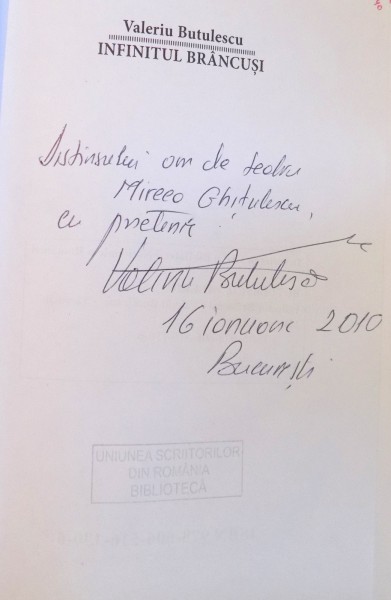 Valeriu Butulescu
INFINITUL BRÂNCUȘI
Distinsului om de teatru
Mircea Ghițulescu,
cu prietenie
Valeriu Butulescu
16 ianuarie 2010
București
UNIUNEA SCRIITORILOR
DIN ROMÂNIA
BIBLIOTECĂ